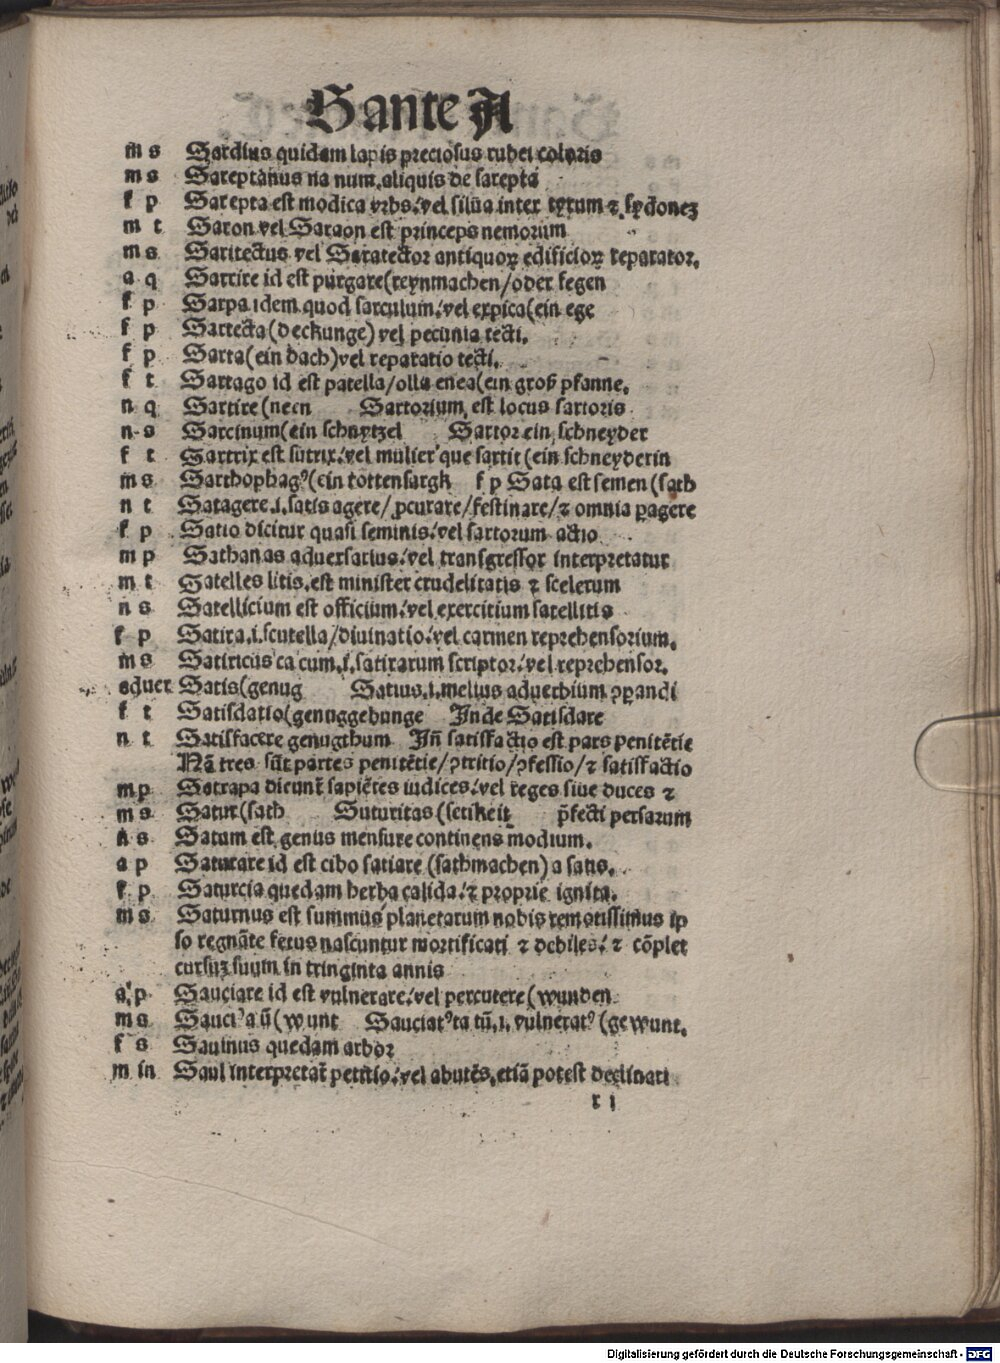 S ante A
m s Sardius quidam lapis preciosus rubei coloris
m s Sareptanus na num. aliquis de sarepta
f p Sarepta est modica vrbs/ vel silua inter tyrum ⁊ sydoneꝫ
m t Saron vel Saraon est princeps nemorum
m s Saritectus vel Saratector antiquoꝝ edificioꝝ reparator.
a q Sarrire id est purgare (reynmachen/oder fegen
f p Sarpa idem quod sarculum/ vel expica (ein ege
f p Sartecta (deckunge) vel pecunia tecti.
f p Sarta (ein dach) vel reparatio tecti.
f t Sartago id est patella/olla enea (ein groß pfanne.
n q Sartire (neen Sartorium est locus sartoris
n s Sarcinum (ein schnytzel Sartor ein schneyder
f t Sartrix est sutrix/ vel mulier que sartit (ein schneyderin
m s Sarthophagꝰ (ein tottensargk f p Sata est semen (sath
n t Satagere .i. satis agere/ ꝓcurare/ festinare/ ⁊ omnia ꝑagere
f p Satio dicitur quasi seminis/ vel sartorum actio
m p Sathanas aduersarius/ vel transgressor interpretatur
m t Satelles litis. est minister crudelitatis ⁊ scelerum
n s Satellicium est officium/ vel exercitium satellitis
f p Satira .i. scutella/diuinatio/ vel carmen reprehensorium.
m s Satiricus ca cum .i. satirarum scriptor/ vel reprehensor.
aduer Satis (genug Satius .i. melius aduerbium ꝯꝑandi
f t Satisdatio (genuggebunge Inde Satisdare
n t Satisfacere genugthum Iñ satisfactio est pars penitētie
Nā tres sūt partes penitētie/ ꝯtritio/ ꝯfessio/ ⁊ satisfactio
m p Satrapa dicunt̄ sapiētes iudices/ vel reges siue duces ⁊
m s Satur (sath Saturitas (setikeit p̄fecti persarum
n s Satum est genus mensure continens modium.
a p Saturare id est cibo satiare (sathmachen) a satis.
f p Saturcia quedam herba calida/ ⁊ proprie ignita.
m s Saturnus est summus planetarum nobis remotissimus ip
so regnāte fetus nascuntur mortificati ⁊ debiles/ ⁊ cōplet
cursuꝫ suum in tringinta annis
a p Sauciare id est vulnerare/ vel percutere (wunden
m s Sauciꝰ a ū (wunt Sauciatꝰ ta tū .i. vulneratꝰ (gewunt.
f s Sauinus quedam arbor
m in Saul interpretat̄ petitio/ vel abutēs. etiā potest declinari
r i
Digitalisierung gefördert durch die Deutsche Forschungsgemeinschaft - DFG